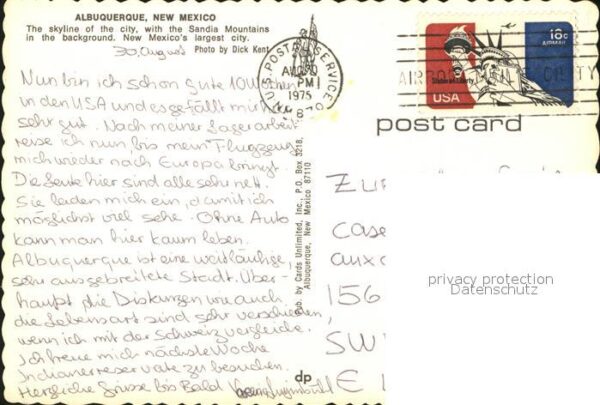 ALBUQUERQUE, NEW MEXICO
The skyline of the city, with the Sandia Mountains
in the background. New Mexico's largest city.
30. August Photo by Dick Kent
Nun bin ich schon gute 10 Wochen
in den USA und es gefällt mir
sehr gut. Nach meiner Lagerarbeit
reise ich nun bis mein Flugzeug
mich wieder nach Europa bringt.
Die Leute hier sind alle sehr nett.
Sie laden mich ein, damit ich
möglichst viel sehe. Ohne Auto
kann man hier kaum leben.
Albuquerque ist eine weitläufige,
sehr ausgebreitete Stadt. Über-
haupt die Distanzen wie auch
die Lebensart sind sehr verschieden,
wenn ich mit der Schweiz vergleiche.
Ich freue mich nächste Woche
Indianerreservate zu besuchen.
Herzliche Grüsse bis Bald
Pub. by Cards Unlimited, Inc., P.O. Box 3218,
Albuquerque, New Mexico 87110
dp
U.S. POSTAL SERVICE
AUG 30
PM
1975
18c
AIRMAIL
Statue of Liberty
USA
post card
ZUR
case
aux
156
SW
E
privacy protection
Datenschutz